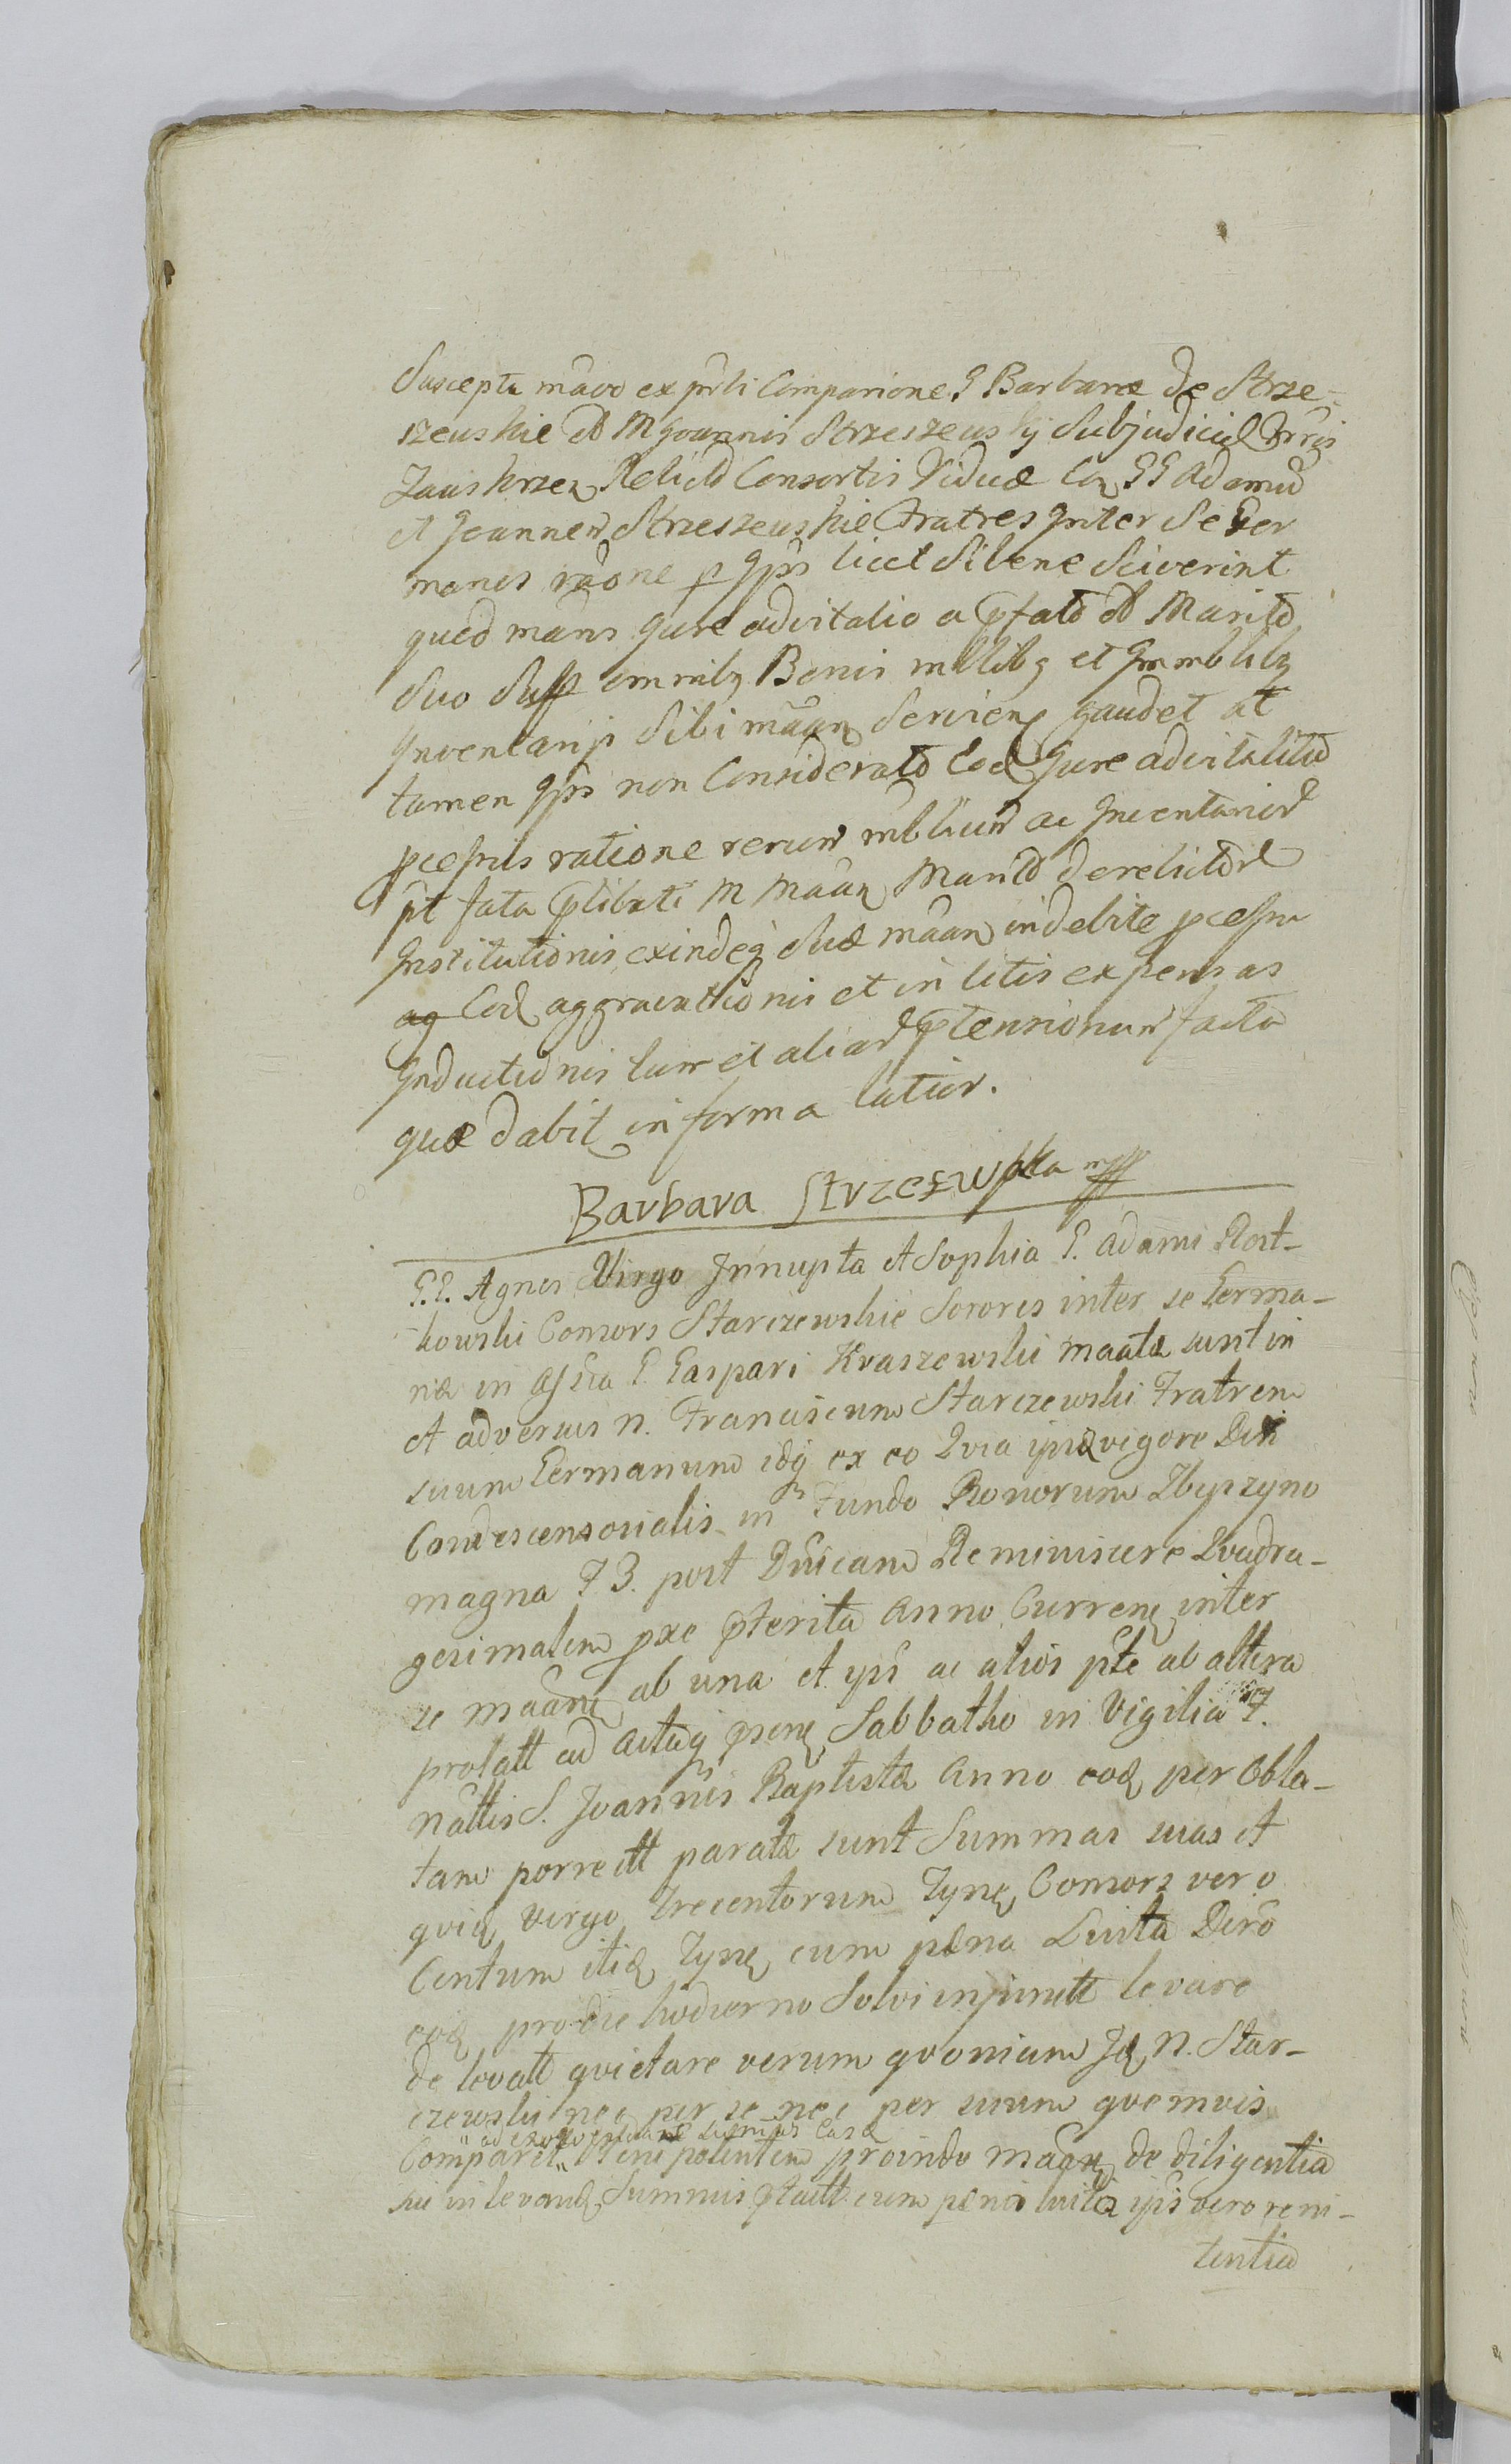 Suscepta mãvo ex prli Comparione G Barbaræ de Strze-
szewskie olt M Joannis Strzeszewskij Subjudicis Trris
Zawskrzen Relictæ Consortis Viduæ Con GG Adamū
et Joannem Strzeszewskie Fratres Inter Se Ger
manos rãone p Ipsi licet Sibene Sciverint
quod mans Jure advitalio a pfato olt Marito
Suo Sup omnibq Bonis mblibq et Immblibq
Inventarijs Sibi mãan Servien gaudet at
tamen Ipsi non Considerato Eod Jure advitalitio
pcessus ratione rerum mblium ac Inventarior
pt fata plibati M Mãan Mariti derelictor
Institutionis, exindeq Suæ mãan indebite pcessu
Eod aggravationis et in litis expensas
Inductionis tum et aliar ptensionum facta
quæ dabit in forma latior.
Barbara Strzeszewska mpp
G.G. Agnes Virgo Innupta et Sophia G. Adami Rost-
kowski Consors Starczewskie Sorores inter se Germa-
næ in Assia G. Gaspari Kraszewski maatæ sunt in
et adversus N. Franciscum Starczewski Fratrem
suum Germanum idq ex eo Quia ipsæ vigore Dcti
Condescensorialis in Fundo Bonorum Zbyszyno
magna F 3. post Dnicam Reminiscere Quadra-
gesimalem pxe pterita Anno Curren inter
se mãan ab una et ips ac alios pte ab altera
prolatt ad Actaq psen Sabbatho in Vigilia F.
Nattis S. Joannis Baptistæ Anno eod per Obla-
tam porrectt paratæ sunt Summas suas et
quid Virgo Trecentorum Tyn Consors vero
Centum itid Tyn cum pæna Luita Dcro
eod pro die hodierno Solvi injunctt levare
de levatt quietare verum quoniam Id N. Star-
czewski nec per se nec per suum quemvis
ad exolvendas summas easd
Comparet " Plenipotentem proinde mãan de diligentia
sui in levand Summis ptactt cum pæna luita ips vero reni-
tentia